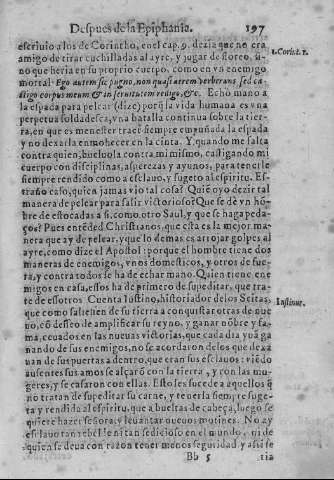 Despues de la Epiphania. 197
escriuio a los de Corintho, en el cap. 9. dezia que no era
1. Corint. 1.
amigo de tirar cuchilladas al ayre, y jugar de floreo, si-
no que heria en su proprio cuerpo, como en vn enemigo
mortal. Ego autem sic pugno, non quasi aerem verberans, sed ca-
stigo corpus meum & in seruitutem redigo, &c. Echò mano a
la espada para pelear (dize) porq̃ la vida humana es vna
perpetua soldadesca, vna batalla continua sobre la tier-
ra, en que es menester traer siempre empuñada la espada
y no dexarla enmohecer en la cinta. Y quando me falta
contra quien, bueluola contra mismo, castigando mi
cuerpo con disciplinas, asperezas y ayunos, para tenerle
siempre rendido como a esclauo, y sugeto al espiritu. Es-
traño caso, quien jamas vio tal cosa? Quiẽ oyo dezir tal
manera de pelear para salir victorioso? Que se dè vn hõ-
bre de estocadas a si, como otro Saul, y que se haga peda-
ços? Pues entẽded Christianos, que esta es la mejor ma-
nera que ay de pelear, y que lo demas es arrojar golpes al
ayre, como dize el Apostol: porque el hombre tiene dos
maneras de enemigos, vnos domesticos, y otros de fue-
ra, y contra todos se ha de echar mano. Quien tiene ene
migos en casa, essos ha de primero de supeditar, que tra-
te de essotros. Cuenta Iustino, historiador de los Scitas,
Iustinus.
que como saliessen de su tierra a conquistar otras de nue
uo, cõ desseo de amplificar su reyno, y ganar nõbre y fa-
ma, ceuados en las nueuas victorias, que cada dia yuã ga
nando de sus enemigos, no se acordaron de los que dexa
uan de sus puertas adentro, que eran sus esclauos: viẽdo
ausentes sus amos se alçarõ con la tierra, y con las mu-
geres, y se casaron con ellas. Esto les sucede a aquellos q̃
no tratan de supeditar su carne, y tenerla siempre suge-
ta y rendida al espiritu, que a bueltas de cabeça, luego se
quiere hazer señora, y leuantar nueuos motines. No ay
esclauo tan rebelde ni tan sedicioso en el mundo, ni de
quien se deua con razon tener menos seguridad, y assi se
Bb 5 tia